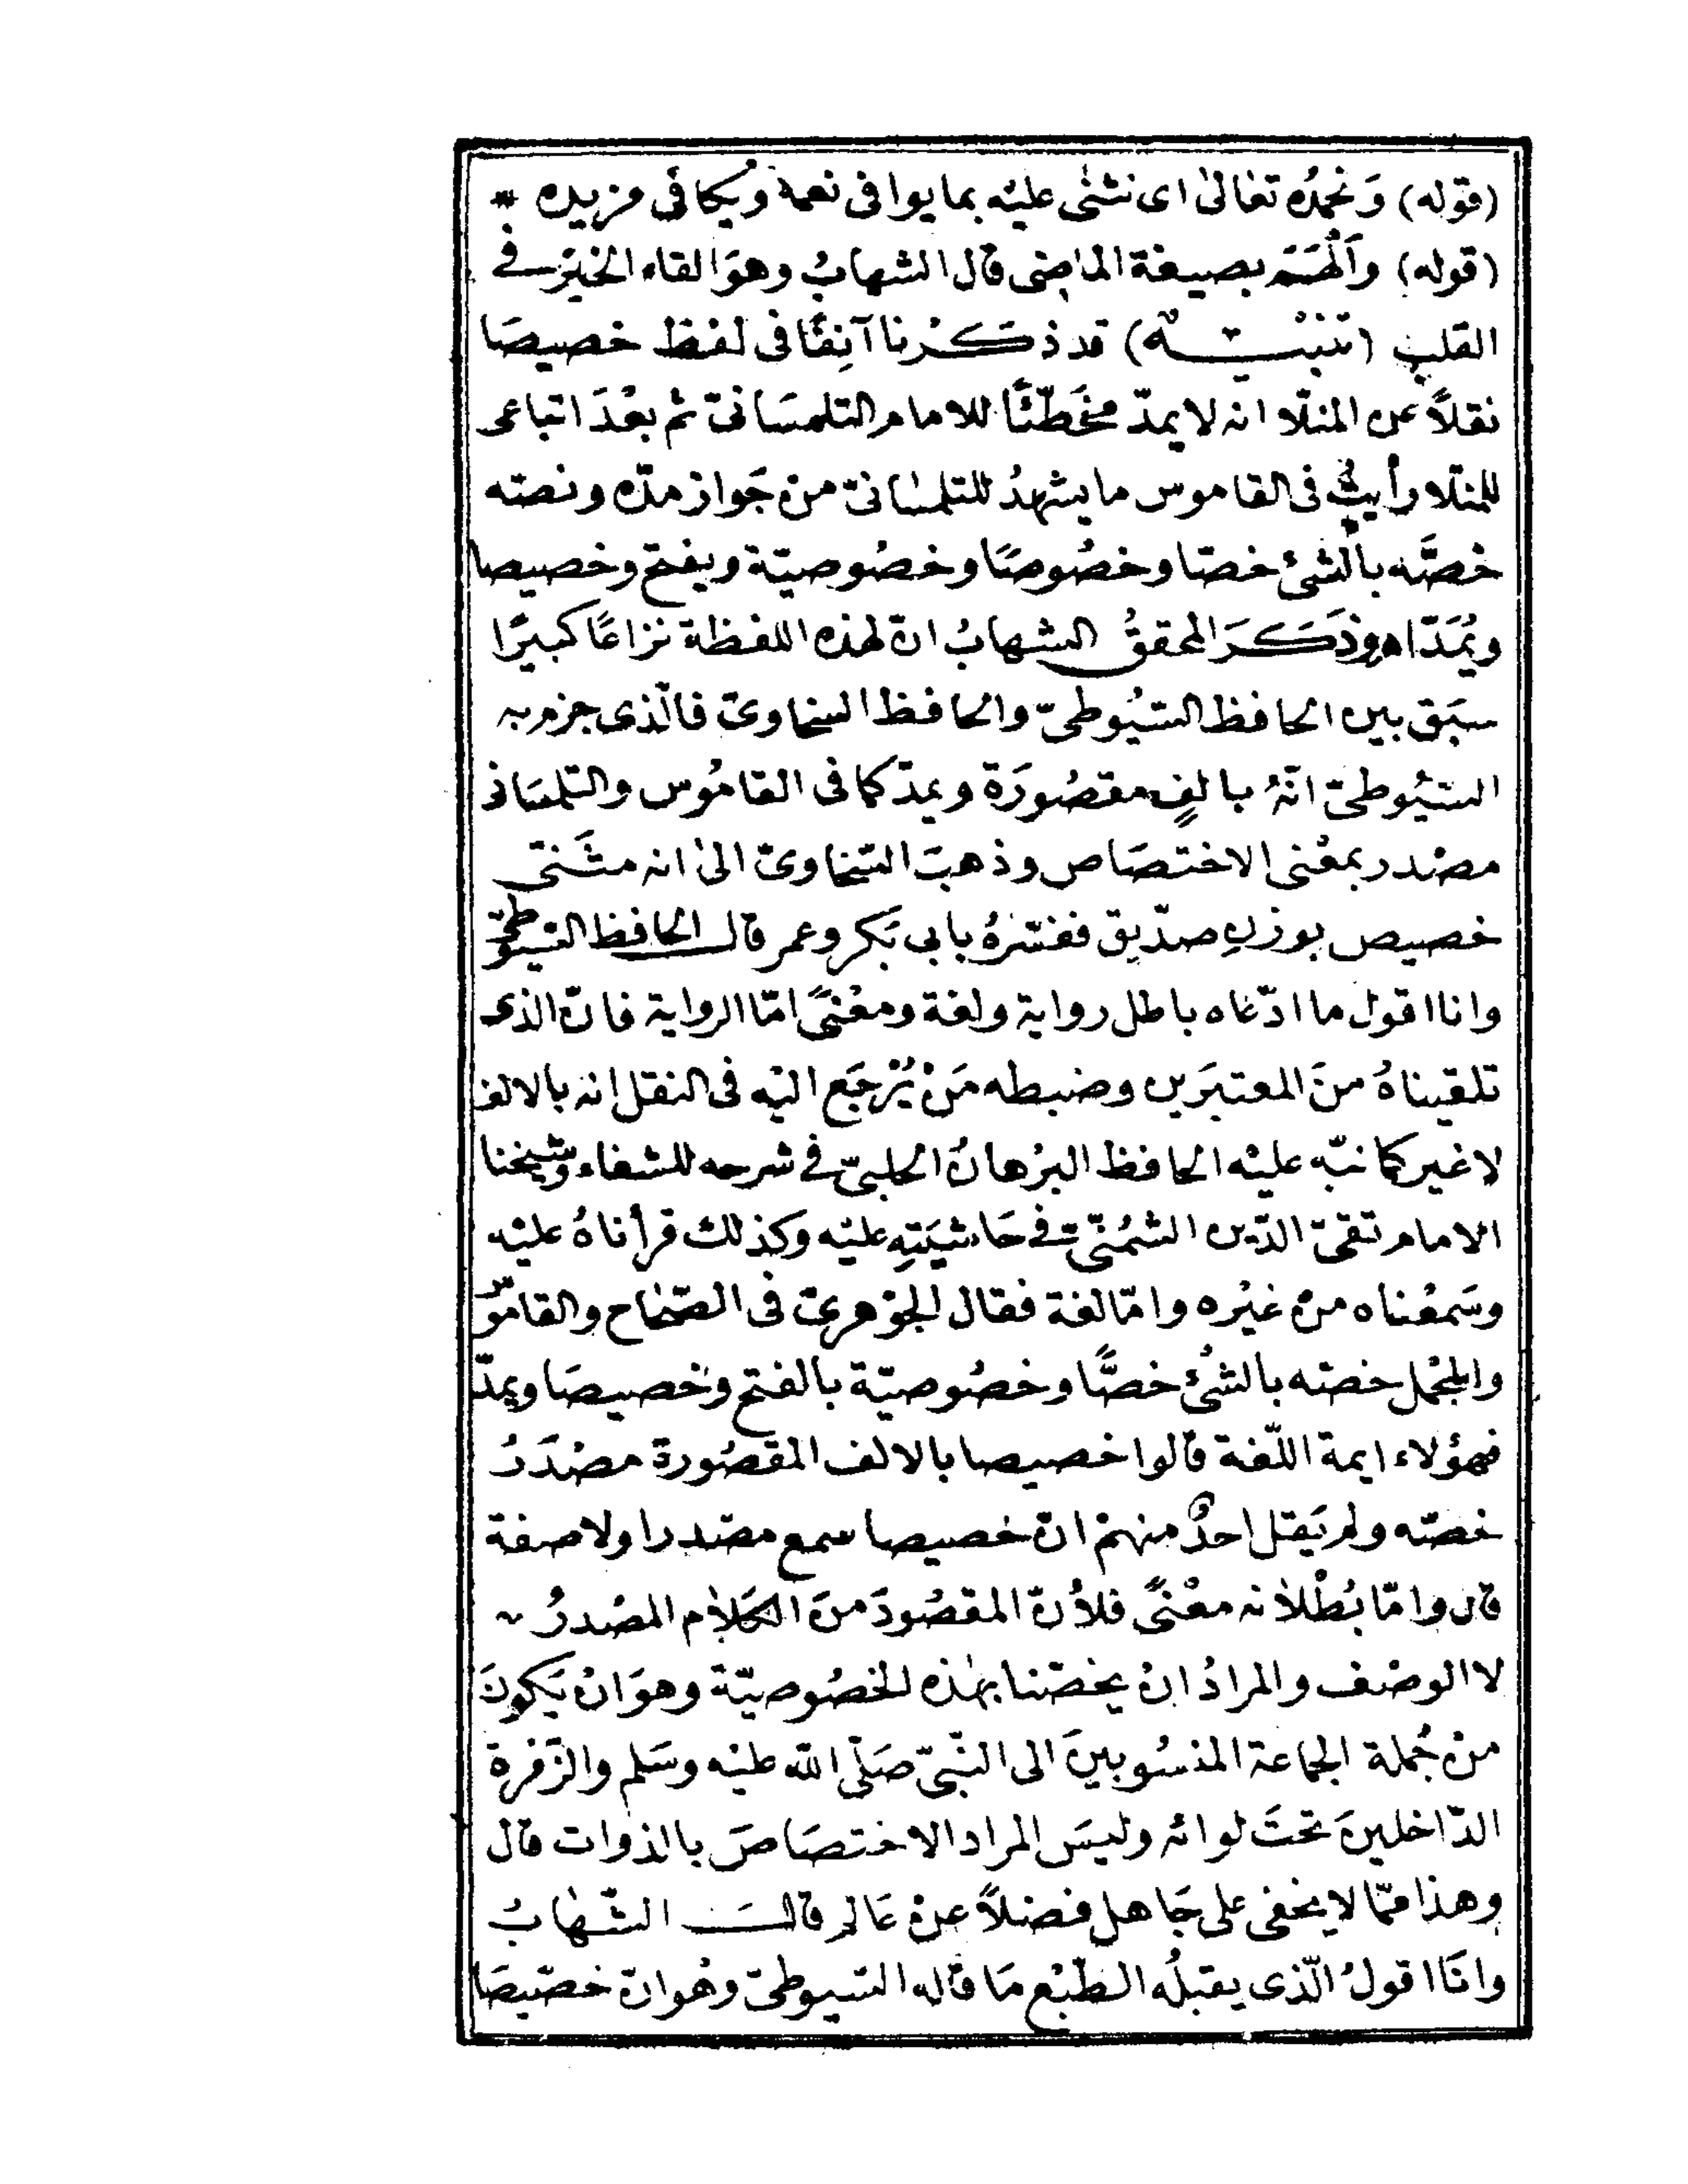 (قوله) وَنحمدُه تعَالىٰ اى نثنٰى عليْه بما يوافى نعمهُ ويُكافَى مزيده *
(قوله) وَاَلْهَمَ بصيغة الماضِى قال الشهابُ وهوَ القاء الخيَرْ فے
القلب (تنبْيٌـه) قد ذكرْنا آنِفًا فى لفظ خصيصَا
نقلاً عن المنلّا انه لا يمدّ مخَطّئًا للامام التلمسَانىّ ثم بعْدَ اتباعى
للمنّلا رأيتُ فى القاموس ما يشهدُ للتلمسٰانىّ من جَواز مدّه ونصّه
خصَّه بالشئ خصّا وخصُوصًا وخصُوصيّة ويفتح وخصيصا
ويُمَدّ اهـ وذَكَرَ المحققُ الشهابُ انّ لهذه اللفظة نزاعًا كبيرًا
سبَق بين الحافظ السّيُوطىّ والحافظ السخاوىّ فالّذى جزم به
السّيُوطىّ انّهُ بالفٍ مقصُورَة ويمدّ كما فى القامُوس والتّلمسَانى
مصْدر بمعْنى الاختصَاص وذهبَ السّخاوىّ الىٰ انه مثَنىّ
خصيص بوزنِ صدّيق ففسّرهُ بابى بَكر وعمر قال الحافظ السّيوُطىّ
وانا اقول ما ادّعَاه باطل رواية ولغة ومعْنىً امّا الرواية فانّ الذى
تلقيناهُ منَ المعتبَرين وضبطه مَنْ يُرْجَع اليْه فى النقل انه بالالف
لا غير كما نبّه عليْه الحافظ البرْهانُ الحلبىّ فے شرحه للشفاء وَشيخنا
الامام تقىّ الدّين الشمُنّىّ فے حَاشيَتِهِ عليْه وكذلك قرأناهُ عليْه
وسَمعْناه منْ غيْره وامّا لغة فقال الجوْهرىّ فى الصّحٰاح والقاموُس
والمجْمل خصّه بالشئ خصًّا وخصُوصيّة بالفتح وخصيصَا ويمدّ
فهؤلاء ايمة اللّغة قالوا خصيصا بالالف المقصُورة مصْدَرُ
خصّه ولم يَقل احدٌ منهمْ انّ خصيصا سمع مصْدرا ولا صفة
قال وامّا بُطْلاَنه معْنىً فلاَنّ المقصُودَ منَ الكلاٰم المصْدرُ ~
لا الوصْف والمرادُ انْ يخصّنا بهٰذه الخصُوصيّة وهوَ انْ يَكونَ
منْ جُملة الجماعة المنسُوبينَ الى النّبىّ صَلّى اللّٰه عليْه وسَلم والزّمرة
الدّاخلينَ تحتَ لوائه وليسَ المراد الاختصَاصَ بالذوات قال
وهذا ممّا لا يخفى على جَاهل فضْلاً عنْ عَالم قالَ الشّهابُ
وانَا اقولُ الّذى يقبلُه الطّبْع مَا قاله السّيوطىّ وهُو انّ خصّيصَا